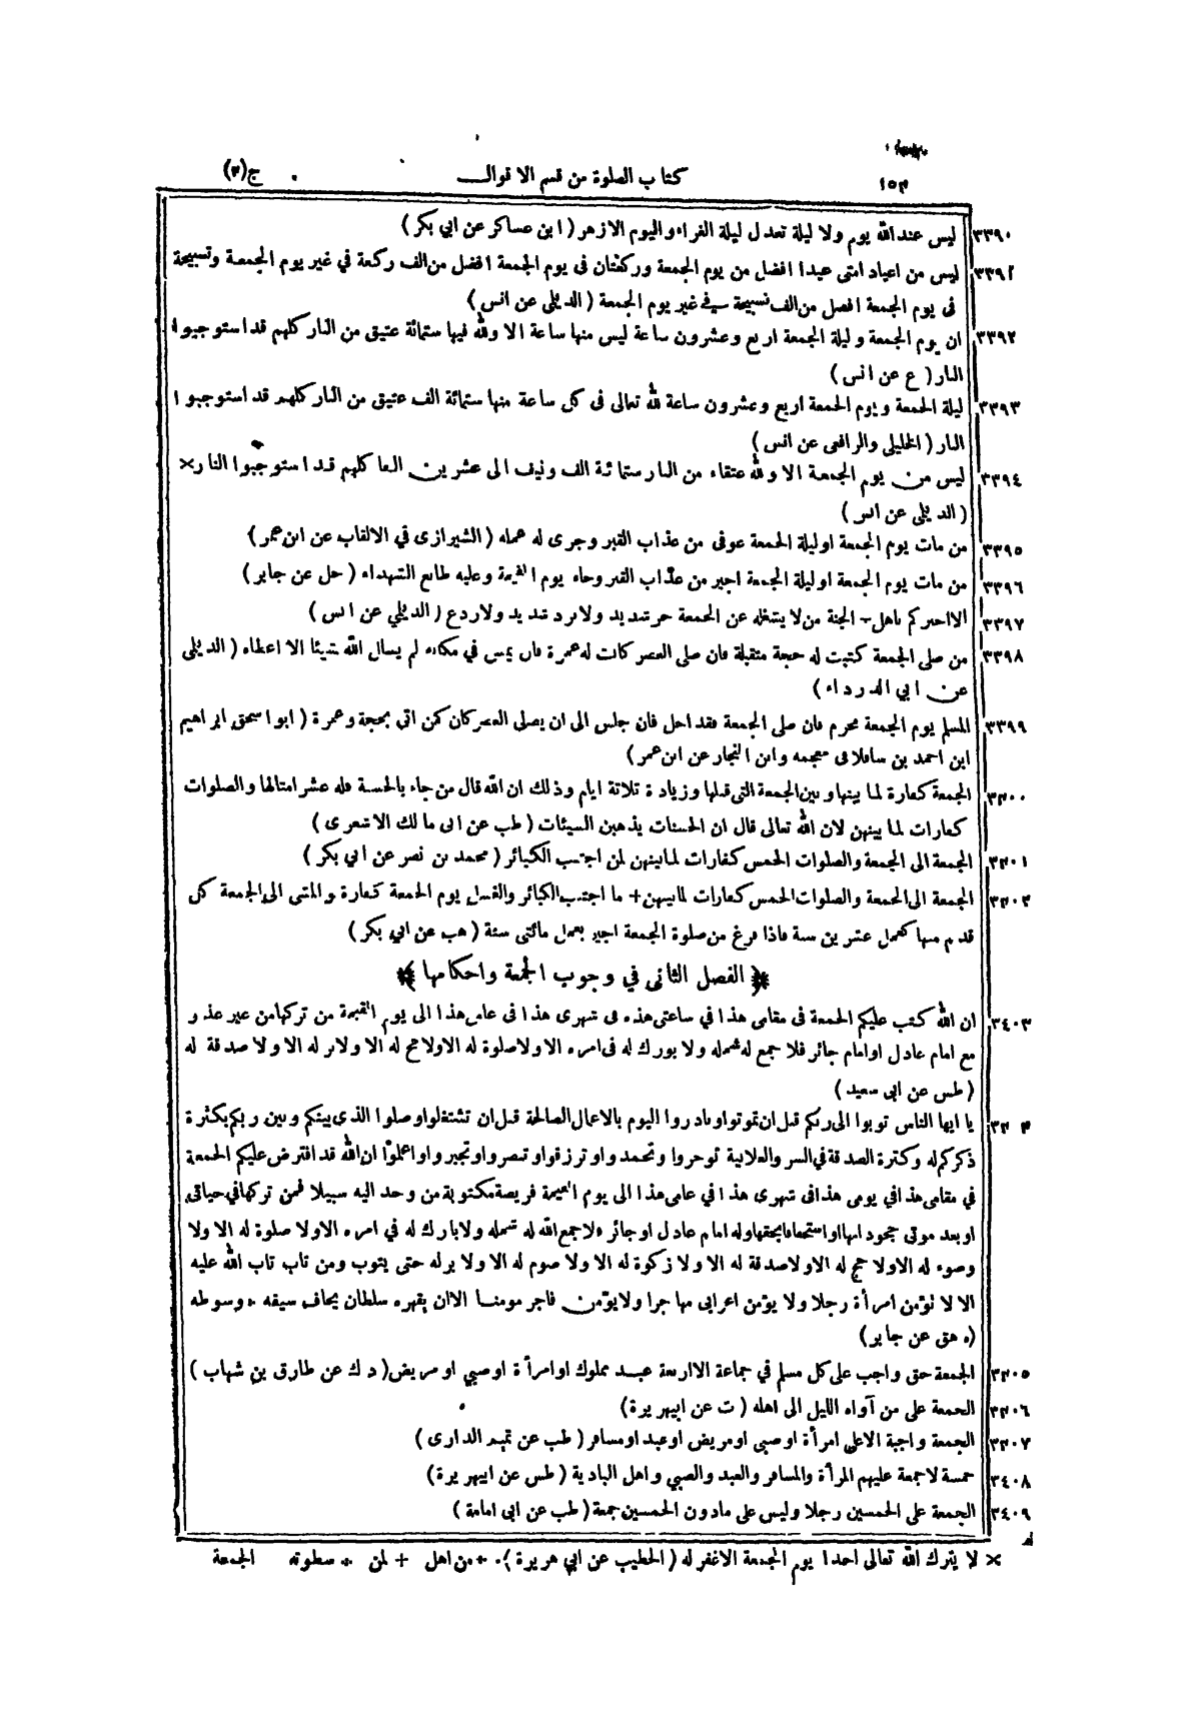 ١٥٣ كتاب الصلوة من قسم الاقوال ج(٤)
٣٣٩٠ ليس عند الله يوم ولا ليلة تعدل ليلة الغراء واليوم الازهر (ابن عساكر عن ابي بكر)
٣٣٩١ ليس من اعياد امتى عيدا افضل من يوم الجمعة وركعتان فى يوم الجمعة افضل من الف ركعة في غير يوم الجمعة وتسبيحة
فى يوم الجمعة افضل من الف تسبيحة في غير يوم الجمعة (الديلى عن انس)
٣٣٩٢ ان يوم الجمعة وليلة الجمعة اربع وعشرون ساعة ليس منها ساعة الا ولله فيها ستمائة عتيق من النار كلهم قد استوجبوا
النار (ع عن انس)
٣٣٩٣ ليلة الجمعة ويوم الجمعة اربع وعشرون ساعة لله تعالى فى كل ساعة منها ستمائة الف عتيق من النار كلهم قد استوجبوا
النار (الخليلى والرافعى عن انس)
٣٣٩٤ ليس من يوم الجمعة الا ولله عتقاء من النار ستمائة الف ونيف الى عشرين الفا كلهم قد استوجبوا النار×
(الديلى عن انس)
٣٣٩٥ من مات يوم الجمعة اوليلة الجمعة عوفى من عذاب القبر وجرى له عمله (الشيرازى في الالقاب عن ابن عمر)
٣٣٩٦ من مات يوم الجمعة اوليلة الجمعة اجير من عذاب القبر وجاء يوم القيمة وعليه طابع الشهداء (حل عن جابر)
٣٣٩٧ الا اخبركم باهل الجنة من لا يشغله عن الجمعة حر شديد ولا برد شديد ولا ردع (الديلي عن انس)
٣٣٩٨ من صلى الجمعة كتبت له حجة متقبلة فان صلى العصر كانت له عمرة فان يمس في مكانه لم يسال الله شيئا الا اعطاه (الديلى
عن ابي الدرداء)
٣٣٩٩ المسلم يوم الجمعة محرم فان صلى الجمعة فقد احل فان جلس الى ان يصلى العصر كان كمن اتى بحجة وعمرة (ابو اسحق ابراهيم
ابن احمد بن ساقلا فى معجمه وابن النجار عن ابن عمر)
٣٤٠٠ الجمعة كفارة لما بينها وبين الجمعة التى قبلها وزيادة ثلاثة ايام وذلك ان الله قال من جاء بالحسنة فله عشر امثالها والصلوات
كفارات لما بينهن لان الله تعالى قال ان الحسنات يذهبن السيئات (طب عن ابى مالك الاشعرى)
٣٤٠١ الجمعة الى الجمعة والصلوات الخمس كفارات لما بينهن لمن اجتنب الكبائر (محمد بن نصر عن ابي بكر)
٣٤٠٢ الجمعة الى الجمعة والصلوات الخمس كفارات لما بينهن+ ما اجتنب الكبائر والغسل يوم الجمعة كفارة والمشى الى الجمعة كل
قدم منها كعمل عشرين سنة فاذا فرغ من صلوة الجمعة اجير بعمل مائتى سنة (هب عن ابي بكر)
﴿ الفصل الثانى في وجوب الجمعة واحكامها ﴾
٣٤٠٣ ان الله كتب عليكم الجمعة فى مقامى هذا في ساعتى هذه فى شهرى هذا فى عامى هذا الى يوم القيمة من تركها من غير عذر
مع امام عادل او امام جائر فلا جمع له شمله ولا بورك له فى امره الا ولا صلوة له الا ولا حج له الا ولا بر له الا ولا صدقة له
(طس عن ابى سعيد)
٣٤٠٤ يا ايها الناس توبوا الى ربكم قبل ان تموتوا وبادروا اليوم بالاعمال الصالحة قبل ان تشتغلوا وصلوا الذى بينكم وبين ربكم بكثرة
ذكركم له وكثرة الصدقة في السر والعلانية توجروا وتحمدوا وترزقوا وتنصروا وتجبروا واعلموا ان الله قد افترض عليكم الجمعة
في مقامى هذا في يومى هذا فى شهرى هذا في عامى هذا الى يوم القيمة فريضة مكتوبة من وجد اليه سبيلا فمن تركها في حياتى
او بعد موتى جحودا بها او استخفافا بحقها وله امام عادل او جائر فلا جمع الله له شمله ولا بارك له في امره الا ولا صلوة له الا ولا
وضوء له الا ولا حج له الا ولا صدقة له الا ولا زكوة له الا ولا صوم له الا ولا بر له حتى يتوب ومن تاب تاب الله عليه
الا لا تؤمن امرأة رجلا ولا يؤمن اعرابى مهاجرا ولا يؤمن فاجر مومنا الا ان يقهره سلطان يخاف سيفه وسوطه
(ه هق عن جابر)
٣٤٠٥ الجمعة حق واجب على كل مسلم في جماعة الا اربعة عبد مملوك او امرأة او صبي او مريض (د ك عن طارق بن شهاب)
٣٤٠٦ الجمعة على من آواه الليل الى اهله (ت عن ابيهريرة)
٣٤٠٧ الجمعة واجبة الا على امرأة او صبى او مريض او عبد او مسافر (طب عن تميم الدارى)
٣٤٠٨ خمسة لا جمعة عليهم المرأة والمسافر والعبد والصبي واهل البادية (طس عن ابيهريرة)
٣٤٠٩ الجمعة على الخمسين رجلا وليس على مادون الخمسين جمعة (طب عن ابى امامة)
× لا يترك الله تعالى احدا يوم الجمعة الا غفر له (الخطيب عن ابي هريرة). ÷ من اهل + لمن ÷ سطوته الجمعة